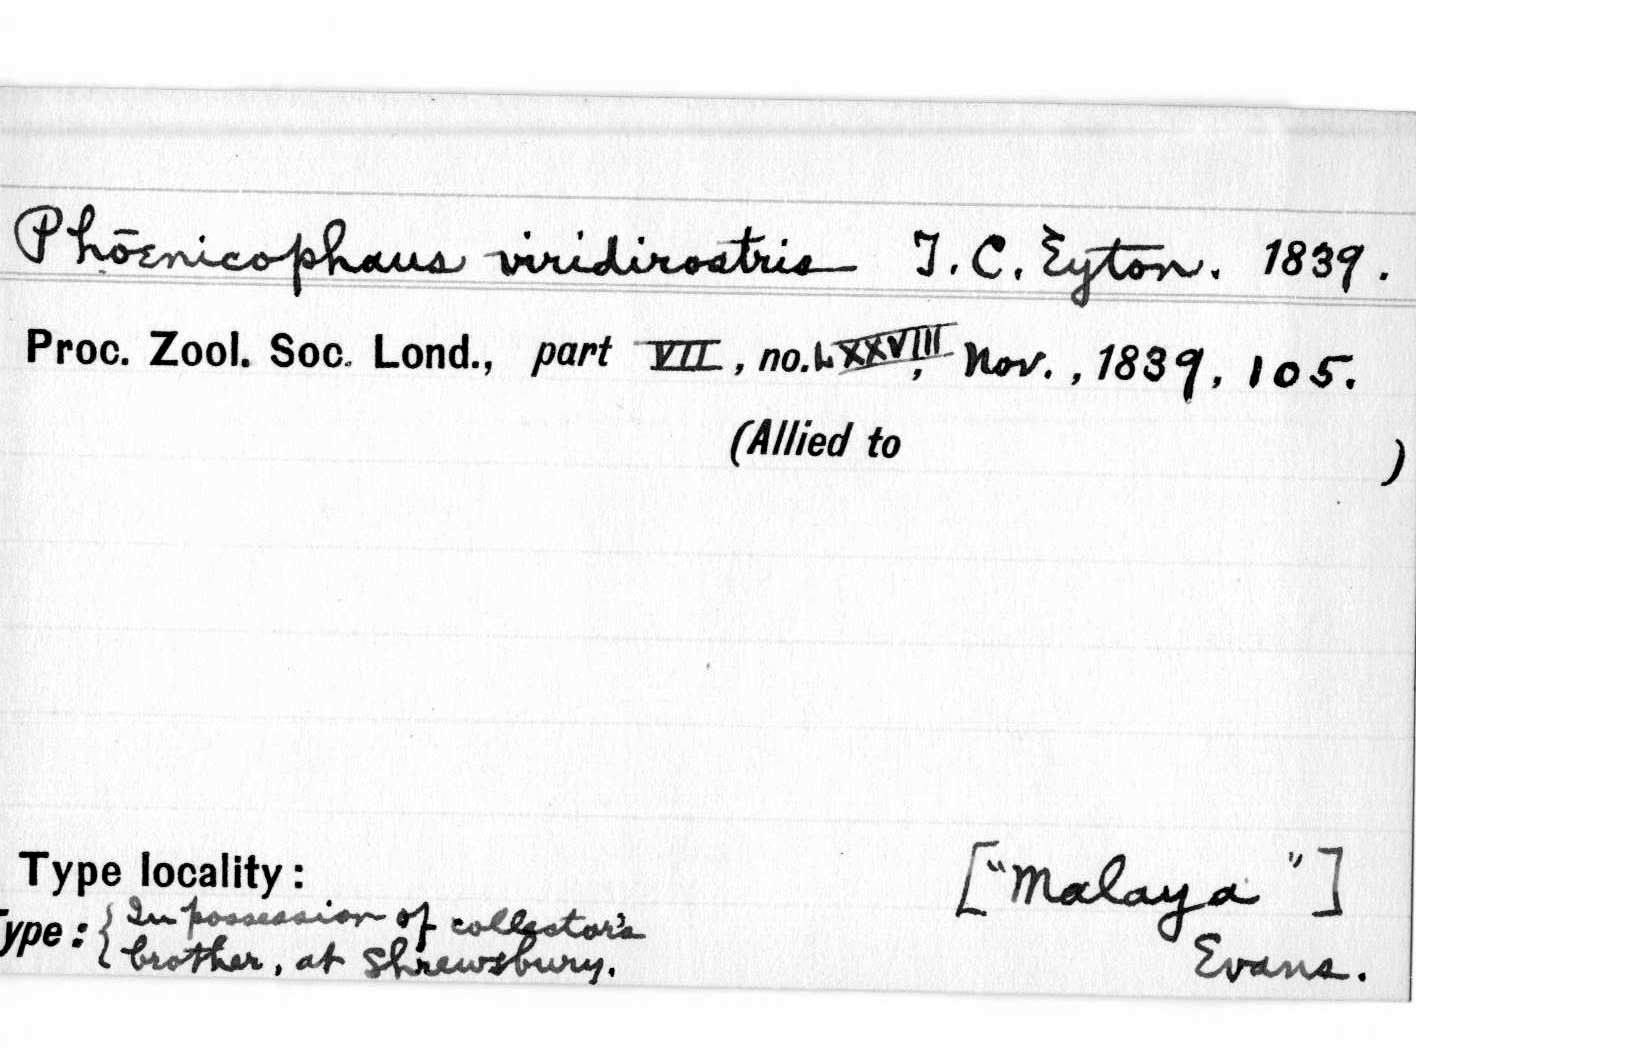 Phōenicophaus viridirostris T. C. Eyton. 1839.
Proc. Zool. Soc. Lond., part VII, no. LXXVIII, Nov., 1839, 105.
(Allied to )
Type locality: ["Malaya"]
Type: { In possession of collector's
brother, at Shrewsbury. Evans.